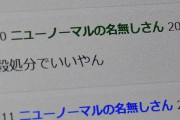 0 ニューノーマルの名無しさん 20
設処分でいいやん
11 ニューノーマルの名無しさん 2